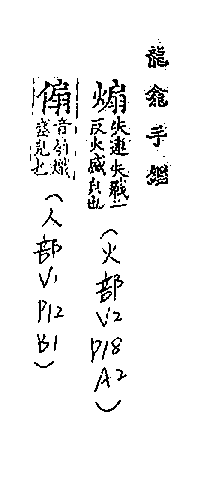 龍龕手鑑
煽失連失戰二
反火盛皃也
(火部
V2
P18
A2)
傓音扇熾
盛皃也
(人部
V1
P12
B1)